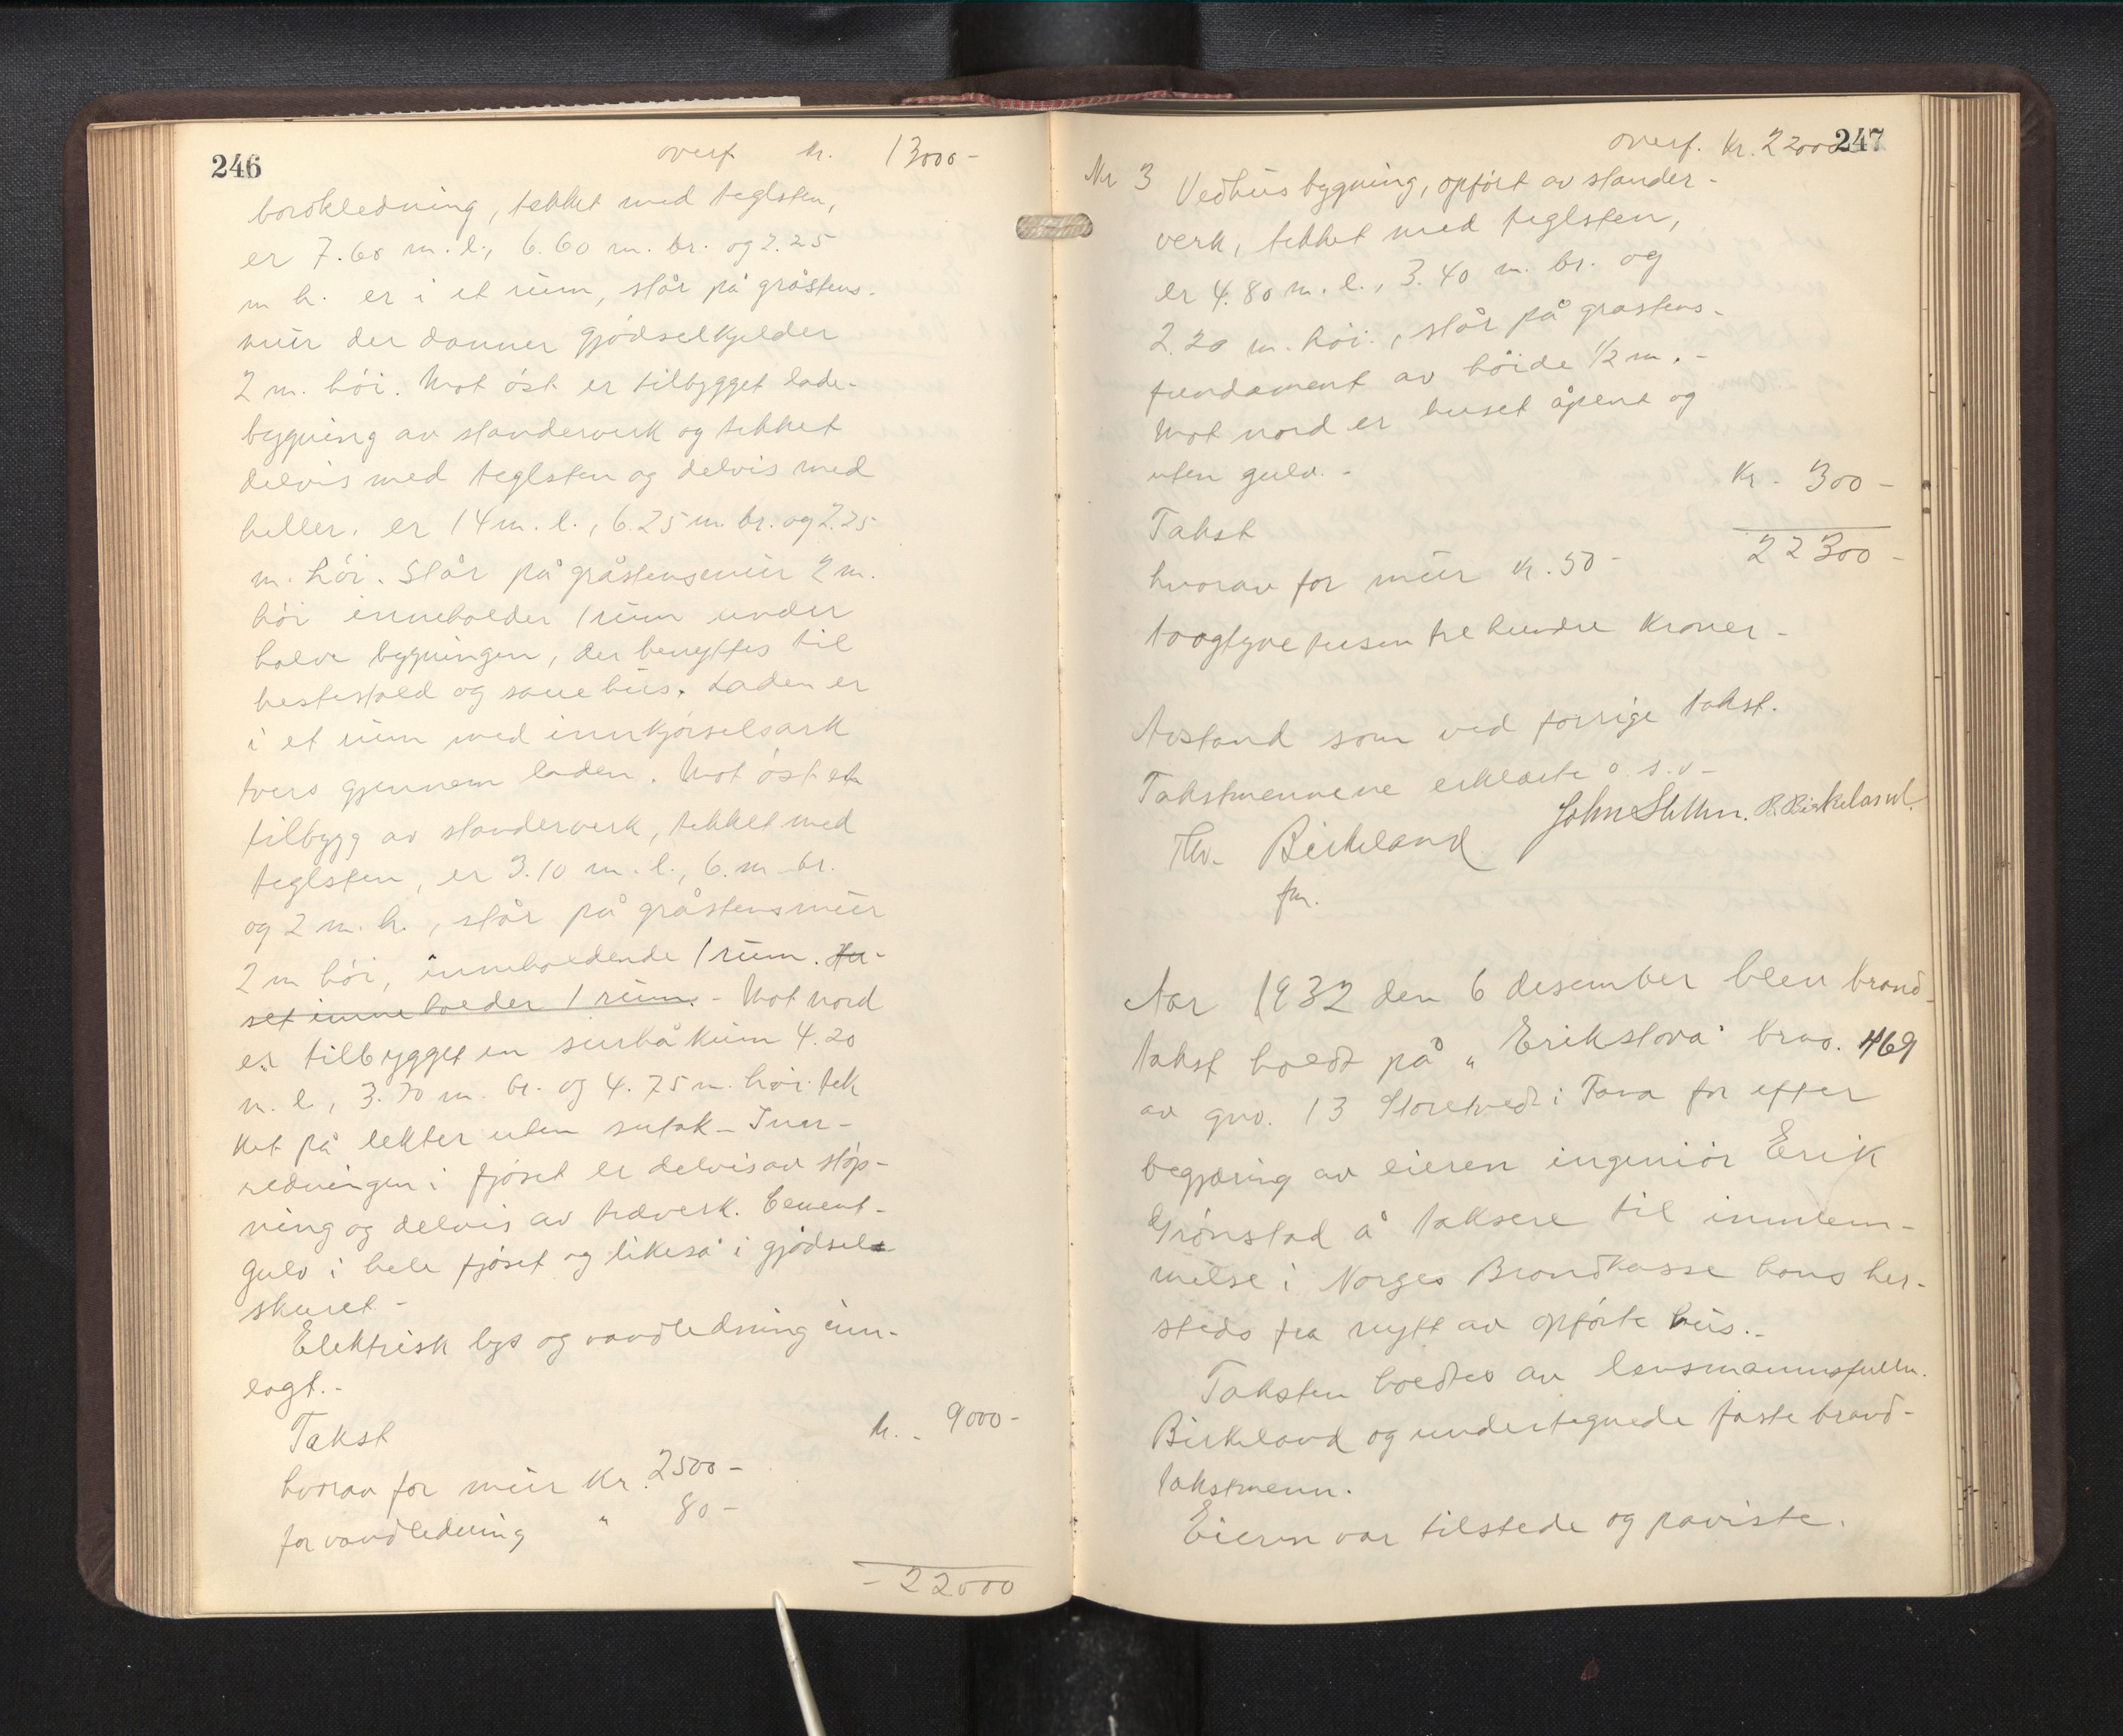 246
overf. kr. 13000 -
bordkledning, tekket med teglsten,
er 7.60 m. l., 6.60 m. br. og 2.25
m h. er i et rum, står på gråstens-
mur der danner gjødselkjelder
2 m. høi. Mot øst er tilbygget lade-
bygning av standerverk og tekket
delvis med teglsten og delvis med
heller, er 14 m. l., 6.25 m. br. og 2.25
m. høi. Står på gråstensmur 2 m.
høi inneholder 1 rum under
halve bygningen, der benyttes til
hestestald og sauehus. Laden er
i et rum med innkjørselsark
tvers gjennem laden. Mot øst et
tilbygg av standerverk, tekket med
teglsten, er 3.10 m. l., 6. m br.
og 2 m. h., står på gråstensmur
2 m høi, inneholdende 1 rum. Hu-
set inneholder 1 rum. - Mot nord
er tilbygget en surhåkum 4.20
m. l., 3.70 m. br. og 4.75 m. høi. tek
ket på lekter uten sutak - Inn-
redningen i fjøset er delvis av støp-
ning og delvis av treverk. Cement-
gulv i hele fjøset og likeså i gjødsel-
skuret -
Elektrisk lys og vandledning inn-
lagt. -
Takst kr. - 9000 -
hvorav for mur Kr. 2500 -
for vandledning " 80 -
- 22000
247
overf. Kr. 22000
Nr 3 Vedhusbygning, opført av stander-
verk, tekket med teglsten,
er 4.80 m. l., 3.40 m. br. og
2.20 m. høi., står på gråstens-
fundament av høide 1/2 m. -
Mot nord er huset åpent og
uten gulv. -
Takst Kr. 300 -
hvorav for mur kr. 50 - 22300 -
toogtyvetusentrehundre Kroner -
Avstand som ved forrige takst.
Takstmennene erklærte o. s. v -
John P. Birkeland.
Thv. Birkeland
fm.
Aar 1932 den 6 desember blev brand-
takst holdt på "Erikstova" brno. 469
av gno. 13 Storetvedt i Fana for efter
begjæring av eieren ingeniør Erik
Grønstad å taksere til innlem-
melse i Norges Brandkasse hans her-
steds fra nytt av opførte hus. -
Taksten holdtes av lensmannsfullm.
Birkeland og undertegnede faste brand-
takstmenn.
Eieren var tilstede og påviste.